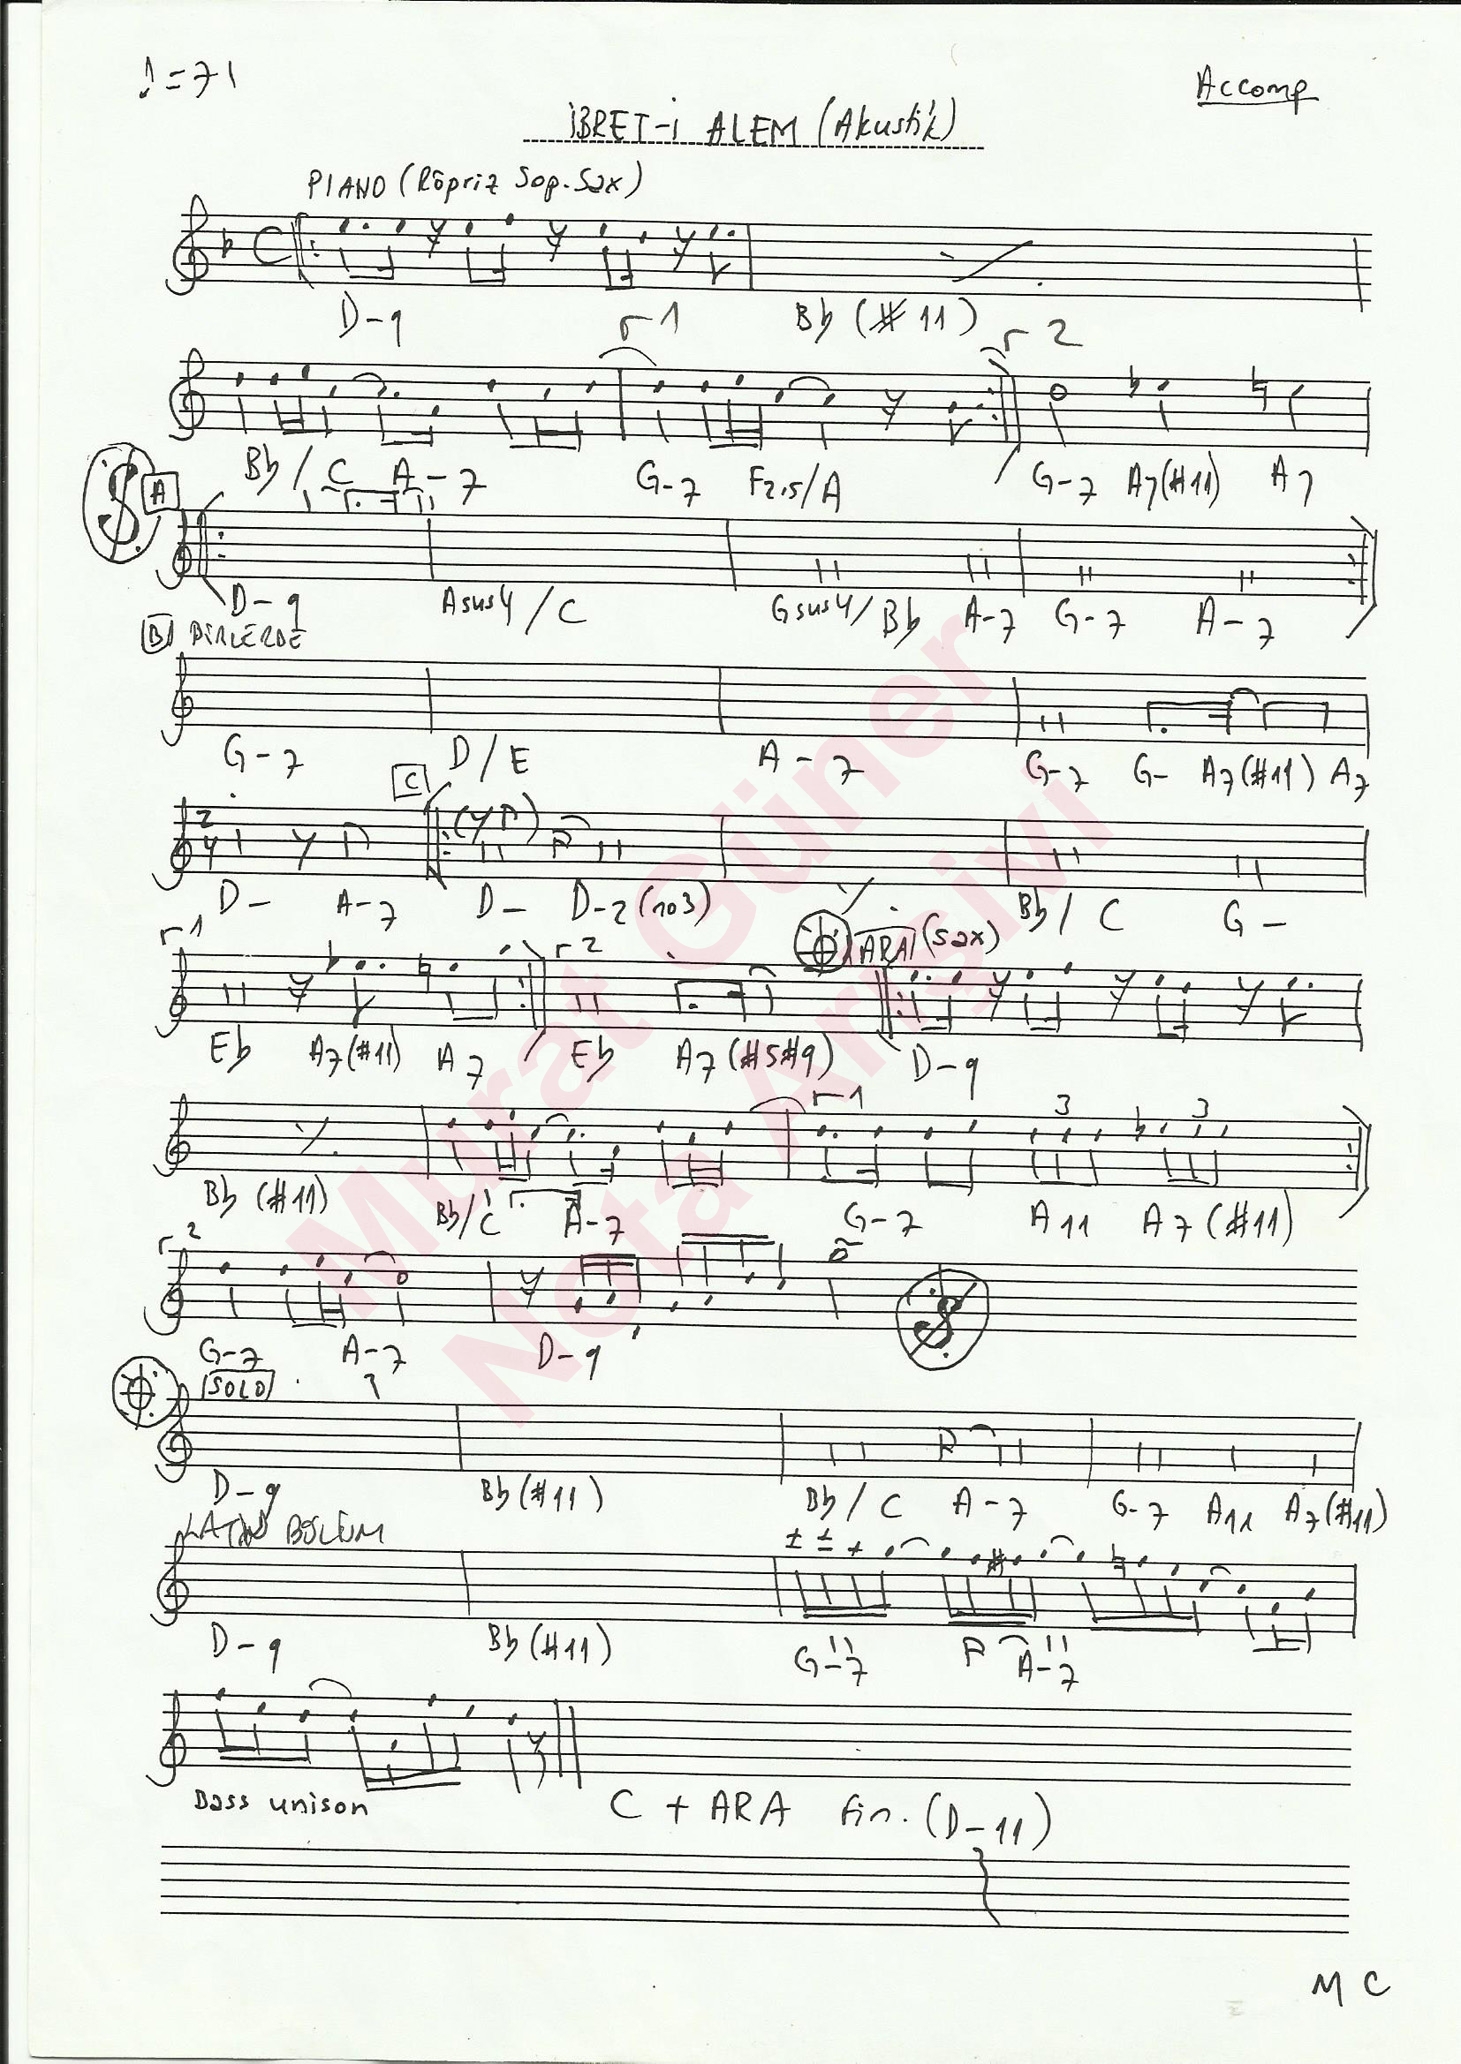 ♩=71
Accomp
İBRET-i ALEM (Akustik)
PIANO (Röpriz Sop. Sax)
D-9 Bb (#11)
1 2
Bb / C A-7 G-7 F2.5/A G-7 A7(#11) A7
A
D-9 Asus4 / C Gsus4 / Bb A-7 G-7 A-7
B BİRLERDE
G-7 D / E A-7 G-7 G- A7(#11) A7
C
2
4
D- A-7 D- D-2 (no3) Bb / C G-
1 2 ARA (Sax)
Eb A7(#11) A7 Eb A7 (#5#9) D-9
1 3 3
Bb (#11) Bb/C A-7 G-7 A11 A7 (#11)
2
G-7 A-7 D-9
SOLO
D-9 Bb (#11) Bb / C A-7 G-7 A11 A7(#11)
LATIN BÖLÜM
D-9 Bb (#11) G-7 A-7
Bass unison C + ARA Fin. (D-11)
M C
Murat Güner
Nota Arşivi